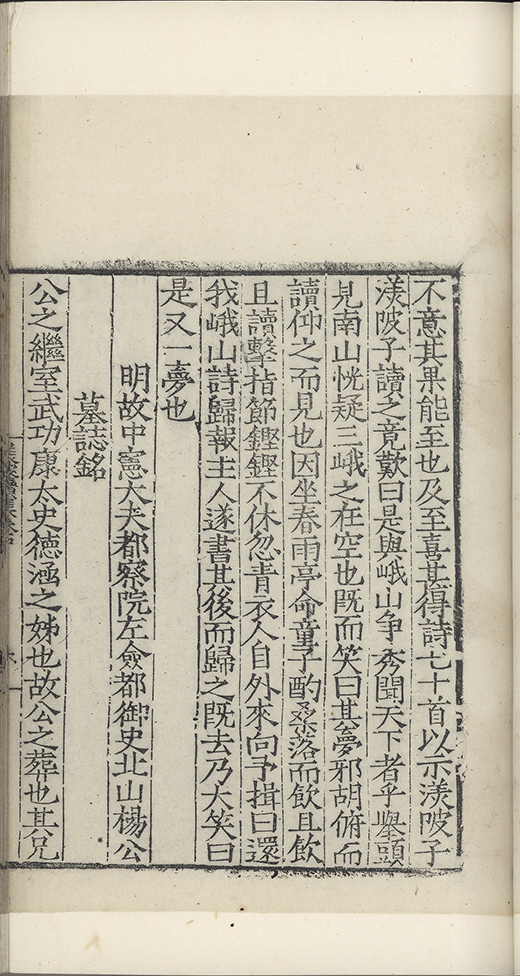 不意其果能至也及至喜甚得詩七十首以示渼陂子
渼陂子讀之竟歎曰是與峨山争秀聞天下者乎擧頭
見南山恍疑三峨之在空也既而笑曰其夢邪胡俯而
讀仰之而見也因坐春雨亭命童子酌桑落而飲且飲
且讀擊指節鏗鏗不休忽青衣人自外來向予揖曰還
我峨山詩歸報主人遂書其後而歸之既去乃大笑曰
是又一夢也
明故中憲大夫都察院左僉都御史北山楊公
墓誌銘
公之繼室武功康太史德涵之姊也故公之葬也其兄